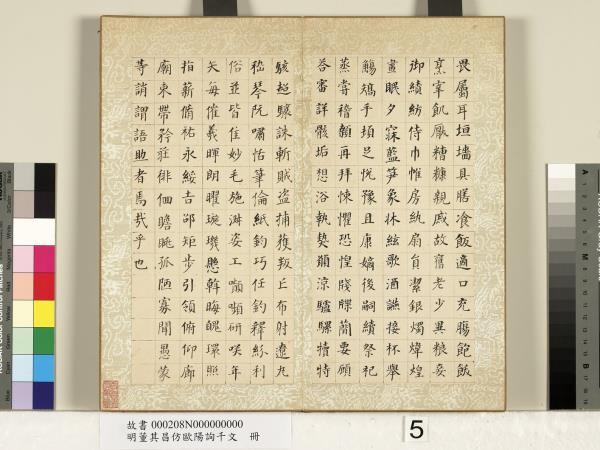 畏屬耳垣墻具膳飡飯適口充腸飽飫
烹宰飢厭糟糠親戚故舊老少異糧妾
御績紡侍巾帷房紈扇員潔銀燭煒煌
晝眠夕寐藍笋象牀絃歌酒讌接杯舉
觴矯手頓足悅豫且康嫡後嗣續祭祀
蒸嘗稽顙再拜悚懼恐惶牋牒簡要顧
荅審詳骸垢想浴執熱願涼驢騾犢特
駭超驤誅斬賊盜捕獲叛亡布射遼丸
嵇琴阮嘯恬筆倫紙鈞巧任釣釋紛利
俗並皆佳妙毛施淑姿工顰妍咲年
矢每催羲暉朗曜琁璣懸斡晦魄環照
指薪脩祜永綏吉邵矩步引領俯仰廊
廟束帶矜莊徘徊瞻眺孤陋寡聞愚蒙
等誚謂語助者焉哉乎也
故書 000208N000000000
明董其昌仿歐陽詢千文 冊
5